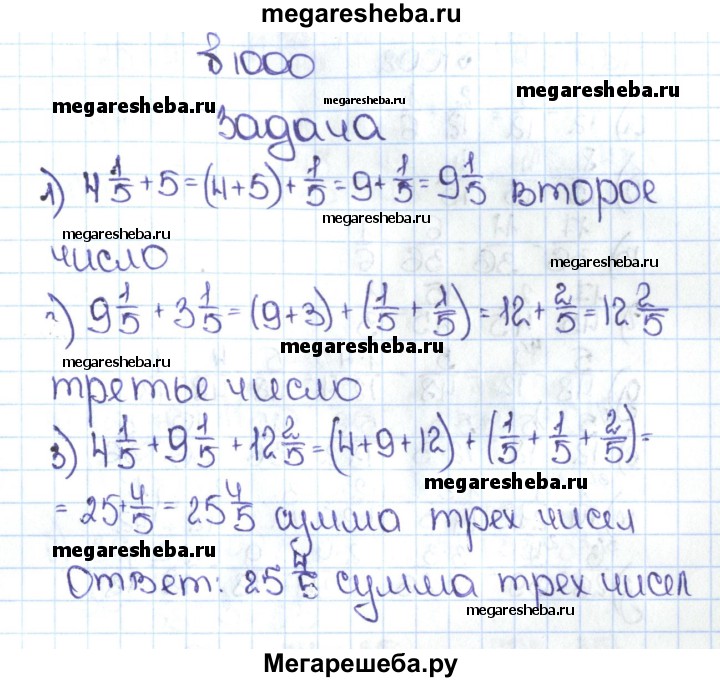 megaresheba.ru
№1000
megaresheba.ru megaresheba.ru megaresheba.ru
Задача
1) 4 1/5 + 5 = (4+5) + 1/5 = 9 + 1/5 = 9 1/5 второе
megaresheba.ru
megaresheba.ru
число
megaresheba.ru
2) 9 1/5 + 3 1/5 = (9+3) + (1/5 + 1/5) = 12 + 2/5 = 12 2/5
megaresheba.ru
megaresheba.ru
третье число
3) 4 1/5 + 9 1/5 + 12 2/5 = (4+9+12) + (1/5 + 1/5 + 2/5) =
megaresheba.ru
= 25 + 4/5 = 25 4/5 сумма трех чисел
megaresheba.ru
Ответ: 25 4/5 сумма трех чисел
megaresheba.ru
Мегарешеба.ру